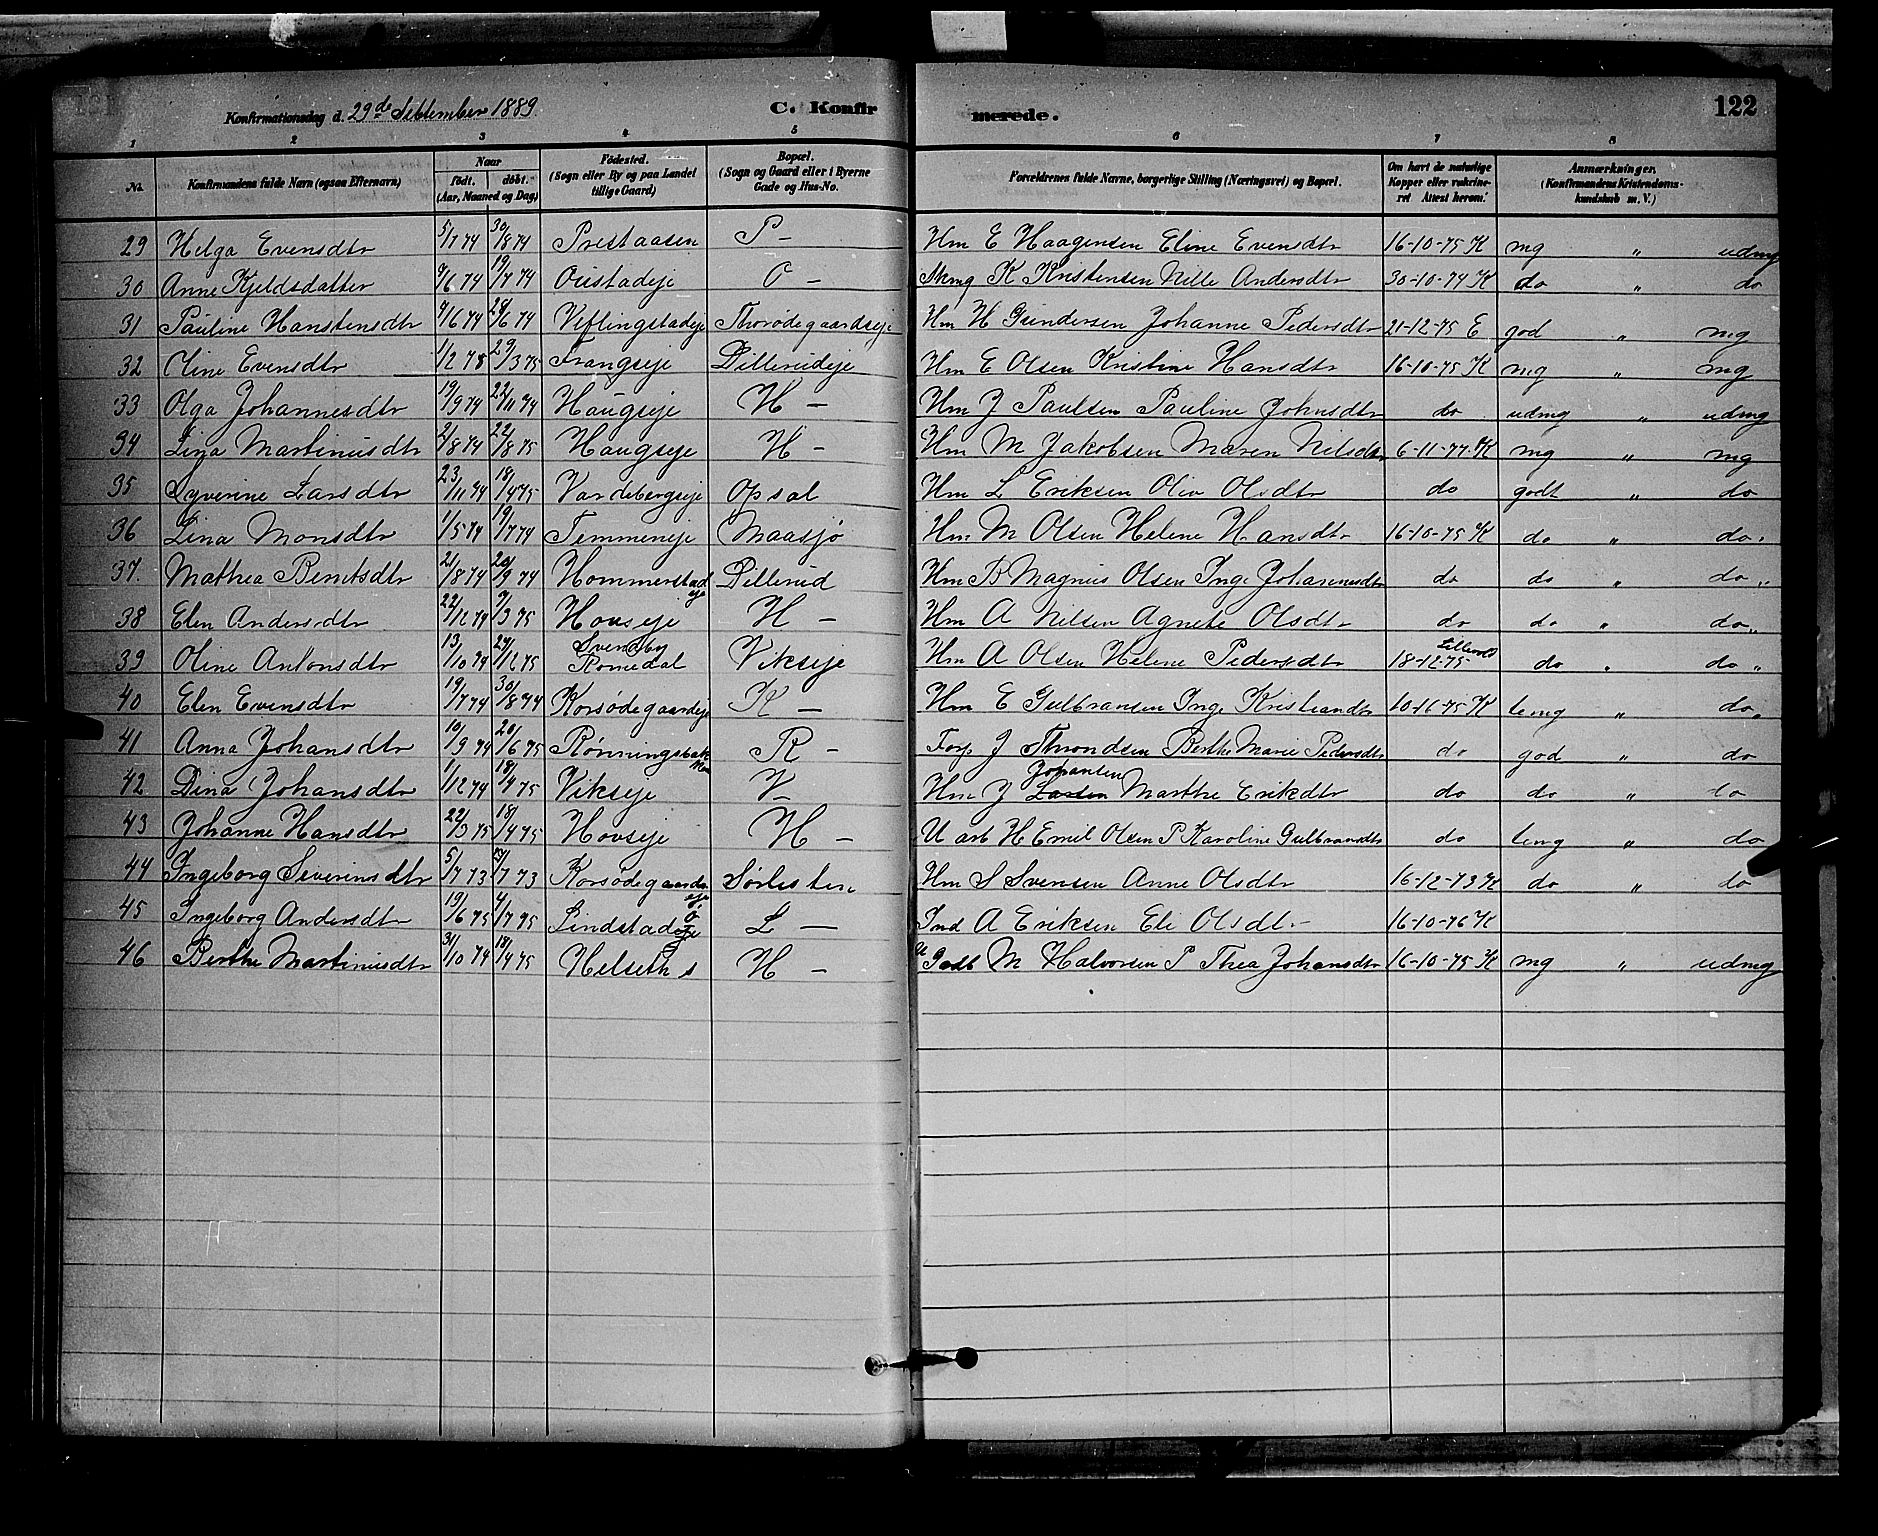 Konfirmationsdag d. 29de September 1889. C. Konfirmerede. 122
1 2 3 4 5 6 7 8
No. Konfirmandens fulde Navn (ogsaa Efternavn) Naar født. døbt. (Aar, Maaned og Dag) Fødested. (Sogn eller By og paa Landet tillige Gaard) Bopæl. (Sogn og Gaard eller i Byerne Gade og Hus-No. Forældrenes fulde Navne, borgerlige Stilling (Næringsvei) og Bopæl. Om havt de naturlige Kopper eller vakcineret. Attest herom. Anmærkninger. (Konfirmandens Kristendomskundskab m. V.)
29 Helga Evensdtr 5/7 74 30/8 74 Prestaasen P - Hm E Haagensen Eline Evensdtr 16-10-75 K mg " udmg
30 Anne Kjeldsdatter 9/6 74 19/7 74 Oustadeje O - K Kristensen Nille Andersdtr 30-10-74 K do " do
31 Pauline Hanstensdtr 9/6 74 28/6 74 Viflingstadeje Thorødegaardseje Hm H Gundersen Johanne Pedersdtr 21-12-75 E god " mg
32 Oline Evensdtr 1/2 75 29/3 75 Frangseje Dillerudeje Hm E Olsen Kristine Hansdtr 16-10-75 K mg " mg
33 Olga Johannesdtr 19/9 74 22/11 74 Haugseje H - Hm J Paulsen Pauline Johnsdtr do udmg " udmg
34 Lina Martinusdtr 2/8 74 22/8 75 Haugseje H - Hm M Jakobsen Maren Nilsdtr 6-11-77 K mg " mg
35 Syverine Larsdtr 23/11 74 18/4 75 Vardebergseje Opsal Hm L Eriksen Oliv Olsdtr do godt " do
36 Lina Monsdtr 1/5 74 19/7 74 Temmeneje Maasjø Hm M Olsen Helene Hansdtr 16-10-75 K do " do
37. Mathea Berntsdtr 2/8 74 20/9 74 Hommerstad eje Dillerud Hm B Magnus Olsen Inge Johannesdtr do do " do "
38 Elen Andersdtr 22/12 74 7/3 75 Hovseje H - Hm A Nilsen Agnete Olsdtr do do " do "
39 Oline Antonsdtr 13/10 74 24/12 75 Svensby Romedal Vikseje Hm A Olsen Helene Pedersdtr 18-12-75 do " do "
40 Elen Evensdtr 19/7 74 30/8 74 Korsødegaardeje K - Hm E Gulbransen Inge Kristiandtr 10-16-75 K temg " do
41 Anna Johansdtr 10/9 74 20/6 75 Rønningsbakken R - Forp J Throndsen Berthe Marie Pedersdtr do god " do
42 Dina Johansdtr 1/12 74 18/4 75 Vikseje V Hm J Larsen Johansen Marthe Erikdtr do do " do
43 Johanne Hansdtr 22/3 75 18/4 75 Hovseje H - U arb H Emil Olsen P Karoline Gulbrandtr do temg " do
44 Ingeborg Severinsdtr 5/7 73 /7 73 Korsødegaards eje Sørlisten Hm S Svensen Anne Olsdtr 16-12-73 K do " do
45 Ingeborg Andersdtr 19/6 75 4/7 75 Lindstad ø L - Ind A Eriksen Eli Olsdtr 16-10-76 K
46 Berthe Martinusdtr 31/10 74 18/4 75 Helseth s H - U M Halvorsen P Thea Johansdtr 16-10-75 K mg " udmg